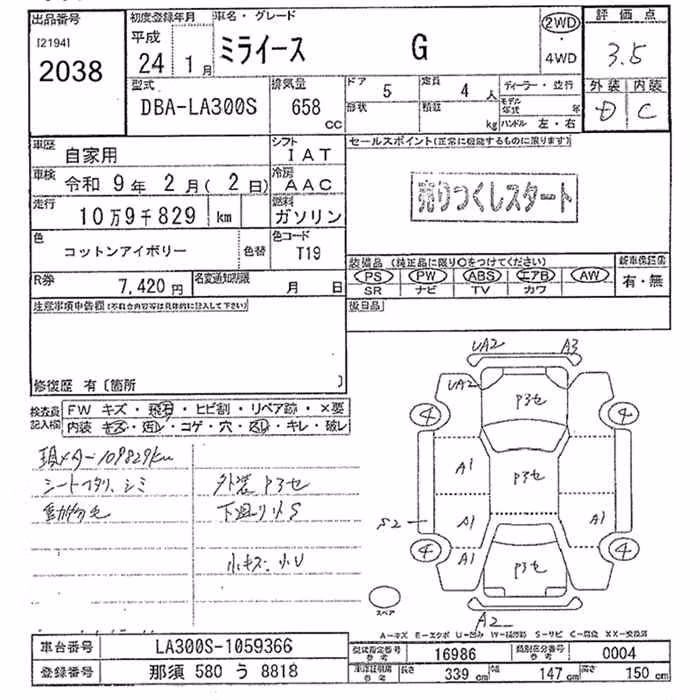 出品番号 初度登録年月 車名・グレード 評価点
[2194] 平成 ミライース G 2WD 3.5
2038 24 1月 4WD
外装 内装
型式 排気量 ドア 5 定員 4人 ディーラー・並行
DBA-LA300S 658 cc 形状 積載 kg モデル年式 年 D C
ハンドル 左・右
車歴 自家用 シフト IAT セールスポイント(正常に機能するものに限ります)
車検 令和 9年 2月( 2日) 冷房 AAC
売りつくしスタート
走行 10万9千829 km 燃料 ガソリン
色 コットンアイボリー 色替 色コード T19
装備品 (純正品に限り○をつけてください) 新車保証書
R券 7,420円 名変通知期限 月 日 PS PW ABS エアB AW 有・無
SR ナビ TV カワ
注意事項申告欄(不具合内容等は具体的に記入して下さい) 後日品
修復歴 有 〔箇所 〕
UA2 A3
UA2 P3セ
検査員記入欄 FW キズ・飛石・ヒビ割・リペア跡・×要
内装 キズ・汚レ・コゲ・穴・スレ・キレ・破レ
4 4
現メーター109829km
シートヘタリ、シミ 外装P3セ
下廻りサS
小キズ、小U
A1 P3セ
S2 A1 A1
4 A1 P3セ 4
スペア A2
A-キズ E-エクボ U-凹み W-補修跡 S-サビ C-腐食 XX-交換済
車台番号 LA300S-1059366 型式指定番号 参考 16986 類別区分番号 参考 0004
登録番号 那須 580 う 8818 車検証記載 参考 長さ 339 cm 幅 147 cm 高さ 150 cm